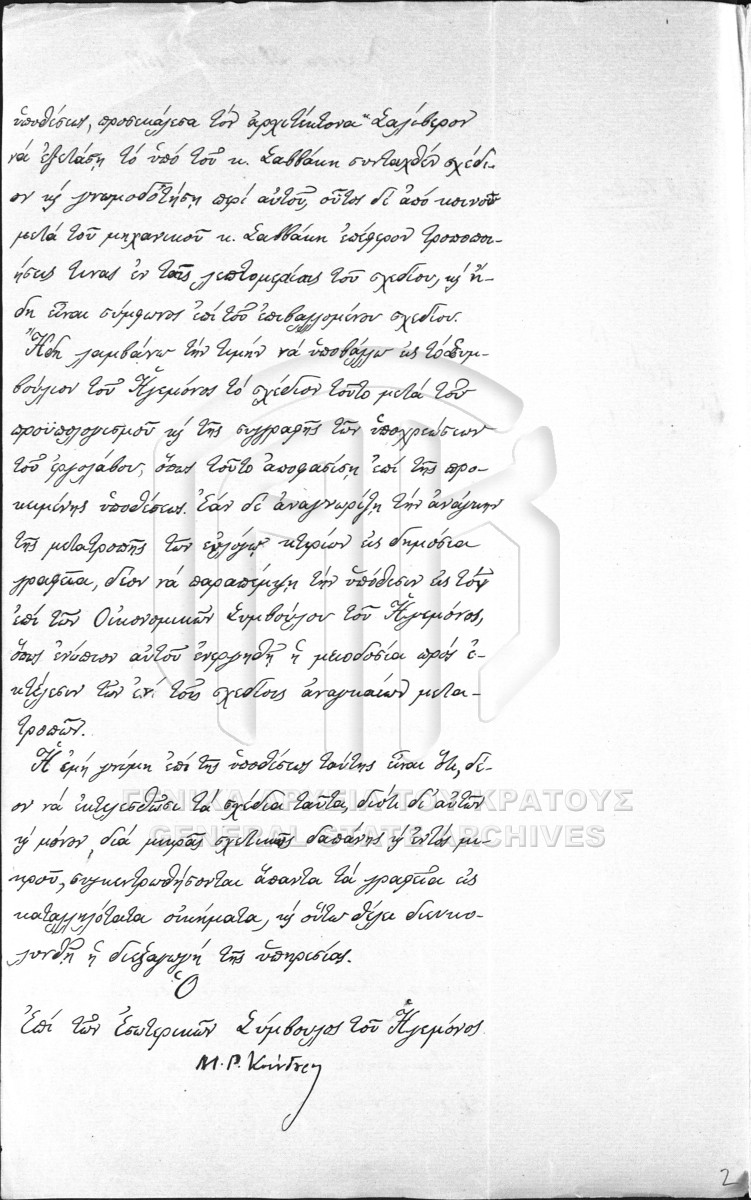 ὑποθέσεως, προσεκάλεσα τὸν ἀρχιτέκτονα Σαλίβερον
νά ἐξετάσῃ τό ὑπό τοῦ κ. Σαββάκη συνταχθέν σχέδι-
ον καί γνωμοδοτήσῃ περί αὐτοῦ, οὗτος δέ ἀπό κοινοῦ
μετά τοῦ μηχανικοῦ κ. Σαββάκη ἐπέφερον τροποποι-
ήσεις τινας ἐν ταῖς λεπτομερείαις τοῦ σχεδίου, καί ἤ-
δη εἶναι σύμφωνος ἐπί τοῦ ἐπιβαλλομένου σχεδίου.
Ἤδη λαμβάνω τήν τιμήν νά ὑποβάλω εἰς τό Συμ-
βούλιον τοῦ Ἡγεμόνος τό σχέδιον τοῦτο μετά τοῦ
προϋπολογισμοῦ καί τῆς συγγραφῆς τῶν ὑποχρεώσεων
τοῦ ἐργολάβου, ὅπως τοῦτο ἀποφασίσῃ ἐπί τῆς προ-
κειμένης ὑποθέσεως. Ἐάν δέ ἀναγνωρίζῃ τήν ἀνάγκην
τῆς μετατροπῆς τῶν ἐν λόγῳ κτιρίων εἰς δημόσια
γραφεῖα, δέον νά παραπέμψῃ τήν ὑπόθεσιν εἰς τόν
ἐπί τῶν Οἰκονομικῶν Σύμβουλον τοῦ Ἡγεμόνος,
ὅπως ἐνώπιον αὐτοῦ ἐνεργηθῇ ἡ μειοδοσία πρός ἐ-
κτέλεσιν τῶν ἐν τοῖς σχεδίοις ἀναγκαίων μετα-
τροπῶν.
Ἡ ἐμή γνώμη ἐπί τῆς ὑποθέσεως ταύτης εἶναι ὅτι, δέ-
ον νά ἐκτελεσθῶσι τά σχέδια ταῦτα, διότι δι' αὐτῶν
καί μόνον, διά μικρᾶς σχετικῶς δαπάνης καί ἐντός μι-
κροῦ, συγκεντρωθήσονται ἅπαντα τά γραφεῖα εἰς
καταλληλότατα οἰκήματα, καί οὕτω θέλει διευκο-
λυνθῇ ἡ διεξαγωγή τῆς ὑπηρεσίας.
Ὁ
Ἐπί τῶν Ἐσωτερικῶν Σύμβουλος τοῦ Ἡγεμόνος
Μ. Ρ. Κούνδουρος
ΓΕΝΙΚΑ ΑΡΧΕΙΑ ΤΟΥ ΚΡΑΤΟΥΣ
GENERAL STATE ARCHIVES
2